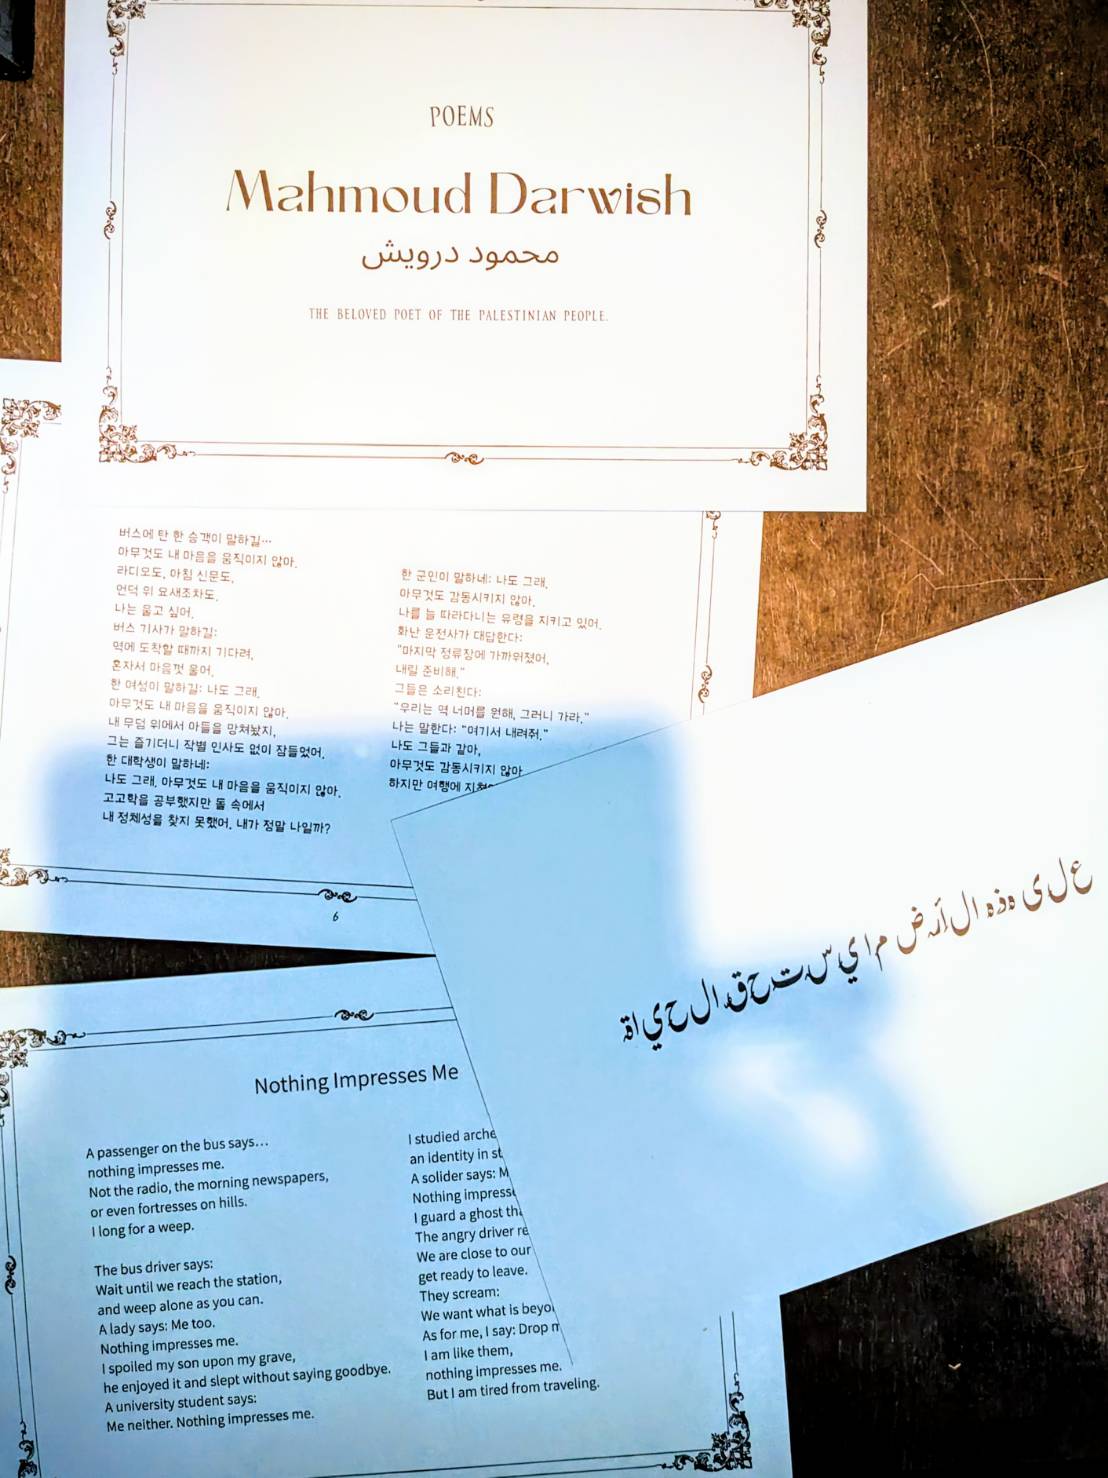 POEMS
Mahmoud Darwish
محمود درويش
THE BELOVED POET OF THE PALESTINIAN PEOPLE.
버스에 탄 한 승객이 말하길…
아무것도 내 마음을 움직이지 않아.
라디오도, 아침 신문도,
언덕 위 요새조차도.
나는 울고 싶어.
버스 기사가 말하길:
역에 도착할 때까지 기다려,
혼자서 마음껏 울어.
한 여성이 말하길: 나도 그래.
아무것도 내 마음을 움직이지 않아.
내 무덤 위에서 아들을 망쳐놨지,
그는 즐기더니 작별 인사도 없이 잠들었어.
한 대학생이 말하네:
나도 그래. 아무것도 내 마음을 움직이지 않아.
고고학을 공부했지만 돌 속에서
내 정체성을 찾지 못했어. 내가 정말 나일까?
한 군인이 말하네: 나도 그래.
아무것도 감동시키지 않아.
나를 늘 따라다니는 유령을 지키고 있어.
화난 운전사가 대답한다:
"마지막 정류장에 가까워졌어,
내릴 준비해."
그들은 소리친다:
"우리는 역 너머를 원해, 그러니 가라."
나는 말한다: "여기서 내려줘."
나도 그들과 같아,
아무것도 감동시키지 않아
하지만 여행에
6
على هذه الأرض ما يستحق الحياة
Nothing Impresses Me
A passenger on the bus says…
nothing impresses me.
Not the radio, the morning newspapers,
or even fortresses on hills.
I long for a weep.
The bus driver says:
Wait until we reach the station,
and weep alone as you can.
A lady says: Me too.
Nothing impresses me.
I spoiled my son upon my grave,
he enjoyed it and slept without saying goodbye.
A university student says:
Me neither. Nothing impresses me.
I studied
an identity in
A solider says:
Nothing
I guard a ghost
The angry driver
We are close to our
get ready to leave.
They scream:
We want what is
As for me, I say: Drop
I am like them,
nothing impresses me.
But I am tired from traveling.